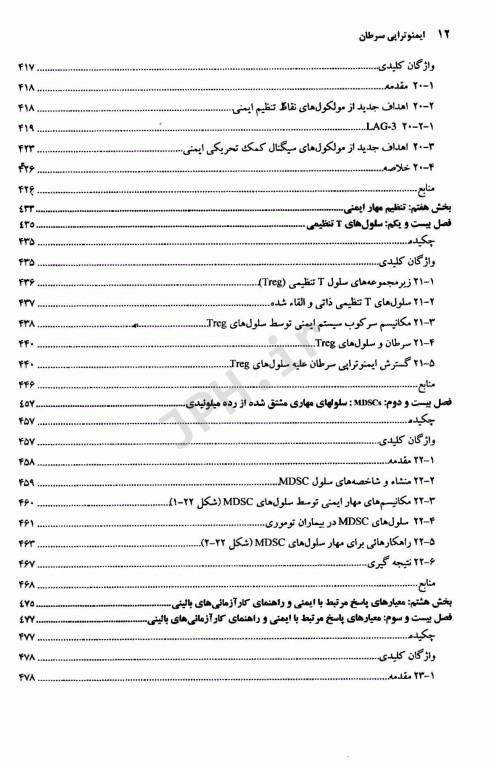 ۱۲ ایمنوتراپی سرطان
واژگان کلیدی ۴۱۷
۲۰-۱ مقدمه ۴۱۸
۲۰-۲ اهداف جدید از مولکول‌های نقاط تنظیم ایمنی ۴۱۸
۲۰-۲-۱ LAG-3 ۴۱۹
۲۰-۳ اهداف جدید از مولکول‌های سیگنال کمک تحریکی ایمنی ۴۲۳
۲۰-۴ خلاصه ۴۲۶
منابع ۴۲۶
بخش هفتم: تنظیم مهار ایمنی ۴۳۳
فصل بیست و یکم: سلول‌های T تنظیمی ۴۳۵
چکیده ۴۳۵
واژگان کلیدی ۴۳۵
۲۱-۱ زیرمجموعه‌های سلول T تنظیمی (Treg) ۴۳۶
۲۱-۲ سلول‌های T تنظیمی ذاتی و القاء شده ۴۳۷
۲۱-۳ مکانیسم سرکوب سیستم ایمنی توسط سلول‌های Treg ۴۳۸
۲۱-۴ سرطان و سلول‌های Treg ۴۴۰
۲۱-۵ گسترش ایمنوتراپی سرطان علیه سلول‌های Treg ۴۴۰
منابع ۴۴۶
فصل بیست و دوم: MDSCs : سلولهای مهاری مشتق شده از رده میلوئیدی ۴۵۷
چکیده ۴۵۷
واژگان کلیدی ۴۵۷
۲۲-۱ مقدمه ۴۵۸
۲۲-۲ منشاء و شاخصه‌های سلول MDSC ۴۵۹
۲۲-۳ مکانیسم‌های مهار ایمنی توسط سلول‌های MDSC (شکل ۲۲-۱) ۴۶۰
۲۲-۴ سلول‌های MDSC در بیماران توموری ۴۶۱
۲۲-۵ راهکارهائی برای مهار سلول‌های MDSC (شکل ۲۲-۲) ۴۶۳
۲۲-۶ نتیجه گیری ۴۶۷
منابع ۴۶۸
بخش هشتم: معیارهای پاسخ مرتبط با ایمنی و راهنمای کارآزمائی‌های بالینی ۴۷۵
فصل بیست و سوم: معیارهای پاسخ مرتبط با ایمنی و راهنمای کارآزمائی‌های بالینی ۴۷۷
چکیده ۴۷۷
واژگان کلیدی ۴۷۸
۲۳-۱ مقدمه ۴۷۸
JPH.ir